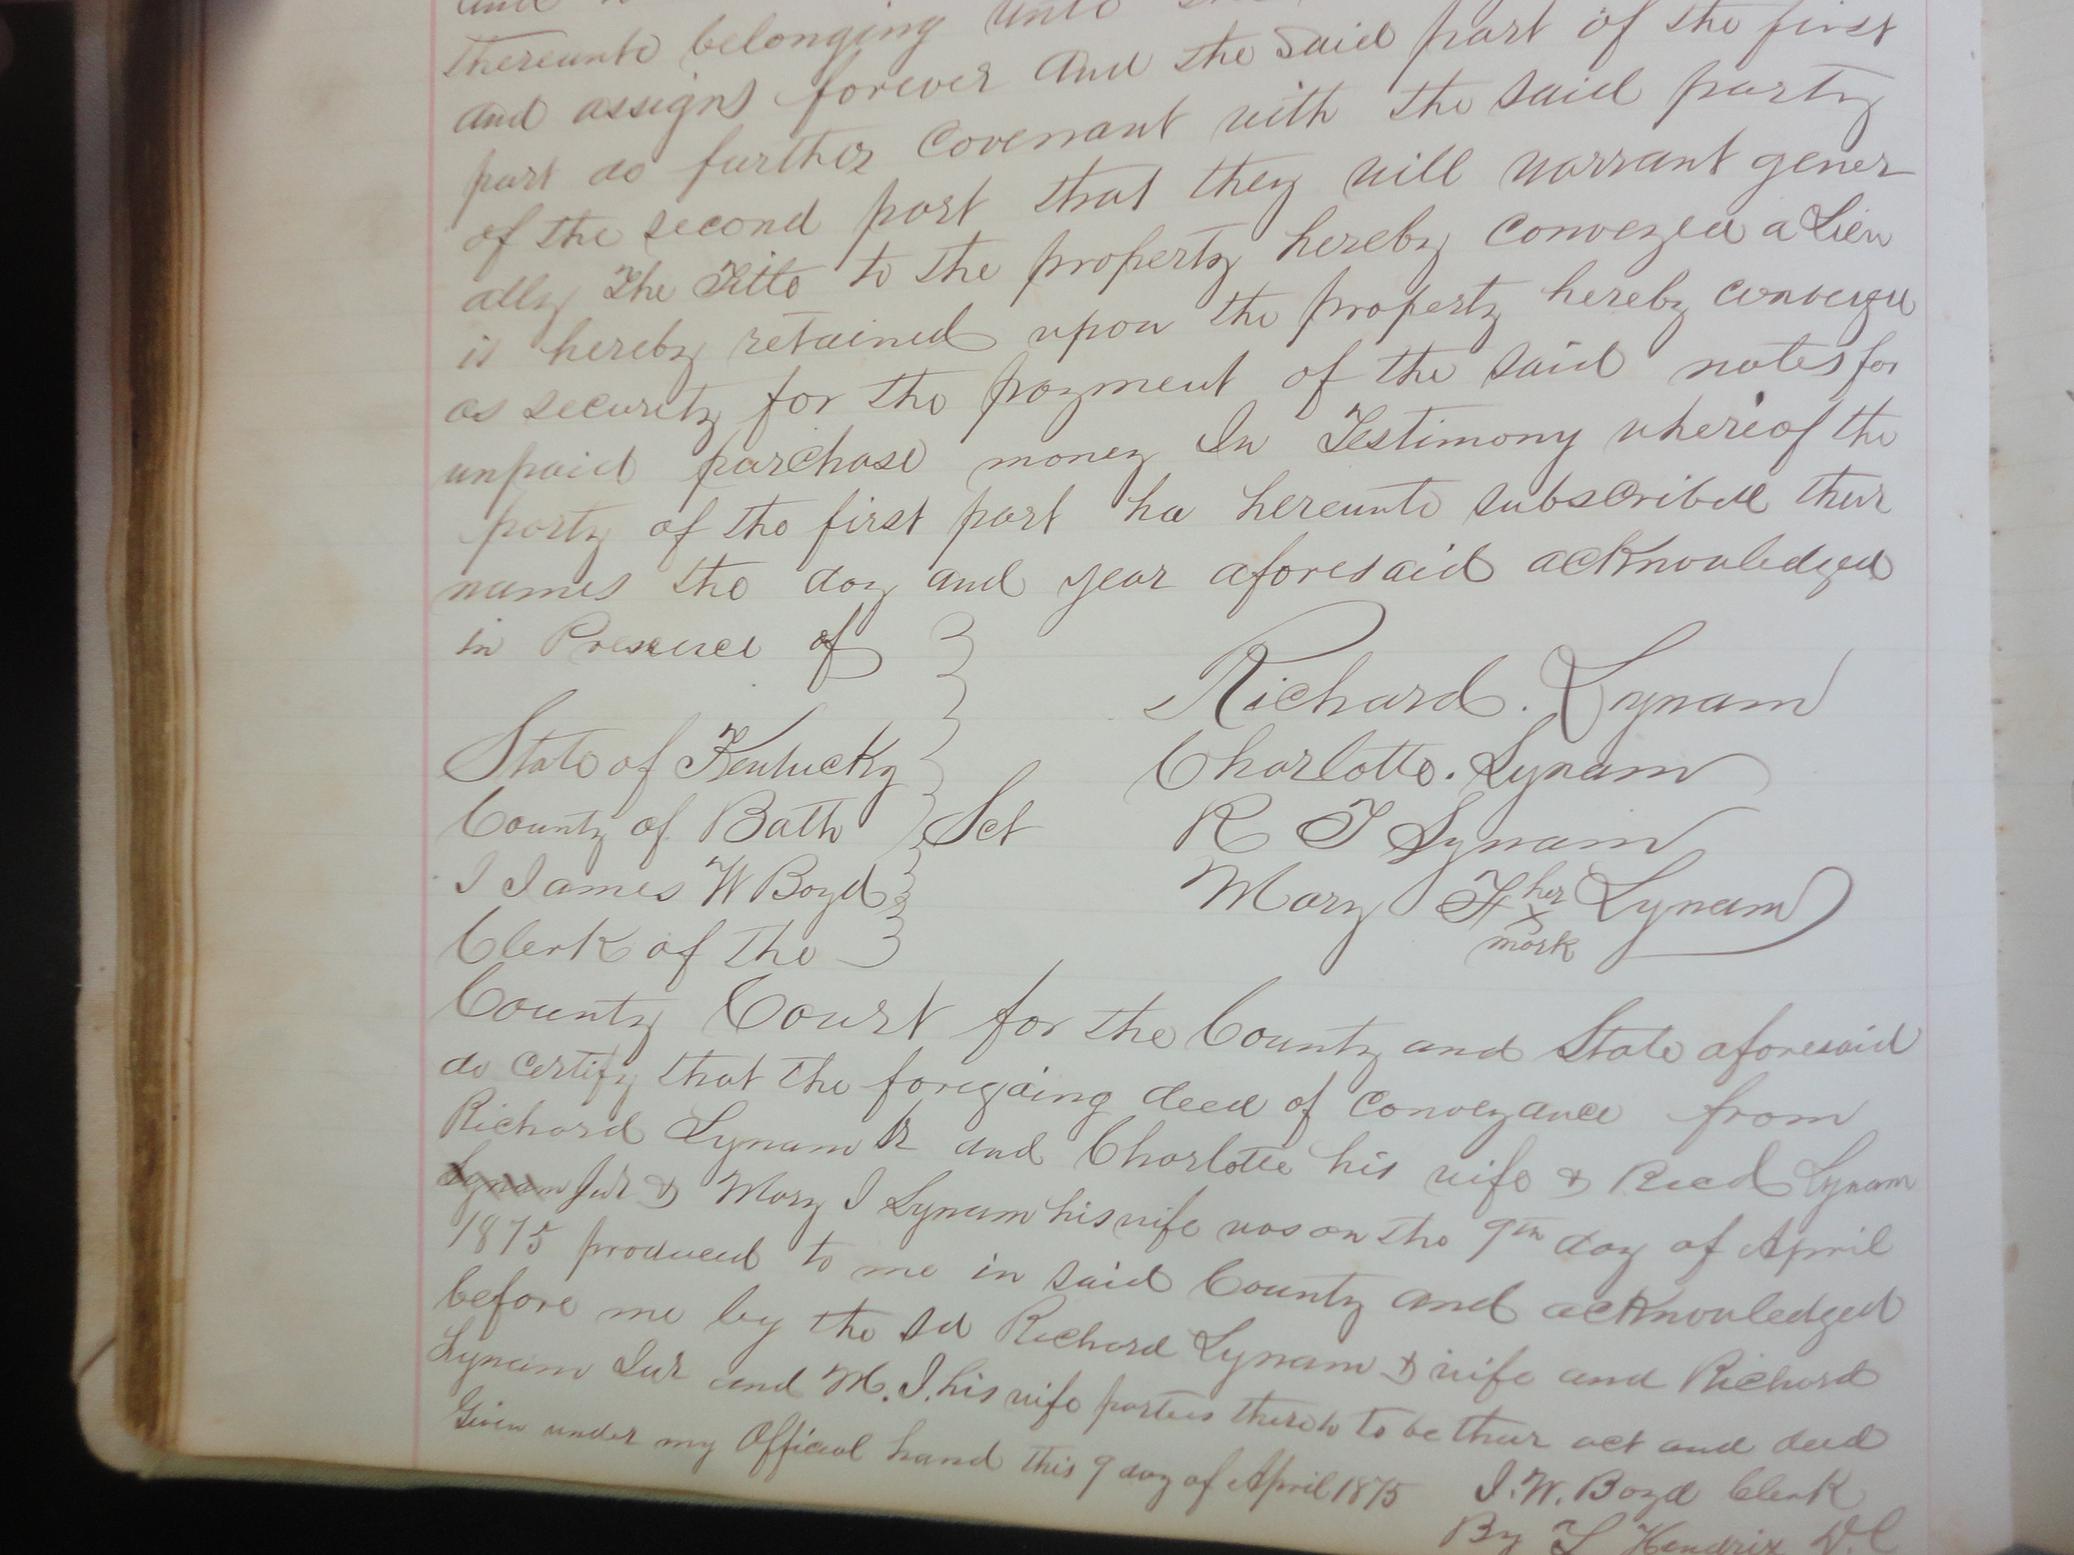 thereunto belonging unto
and assigns forever And the said part of the first
part do further covenant with the said party
of the second part that they will warrant gener
ally The Title to the property hereby conveyed a Lien
is hereby retained upon the property hereby conveyed
as security for the payment of the said notes for
unpaid purchase money In Testimony whereof the
party of the first part ha hereunto subscribed their
names the day and year aforesaid acknowledged
in Presence of
Richard. Lynam
State of Kentucky
Charlotte. Lynam
County of Bath Sct
R T Lynam
I James W Boyd
Mary F her x mark Lynam
Clerk of the
County Court for the County and State aforesaid
do certify that the foregoing deed of conveyance from
Richard Lynam Sr and Charlotte his wife & Ricd Lynam
Lynam Jur & Mary I Lynam his wife was on the 9th day of April
1875 produced to me in said County and acknowledged
before me by the sd Richard Lynam & wife and Richard
Lynam Jur and M. I. his wife parties thereto to be their act and deed
Given under my Official hand this 9 day of April 1875
J. W. Boyd Clerk
By T Hendrix D.C